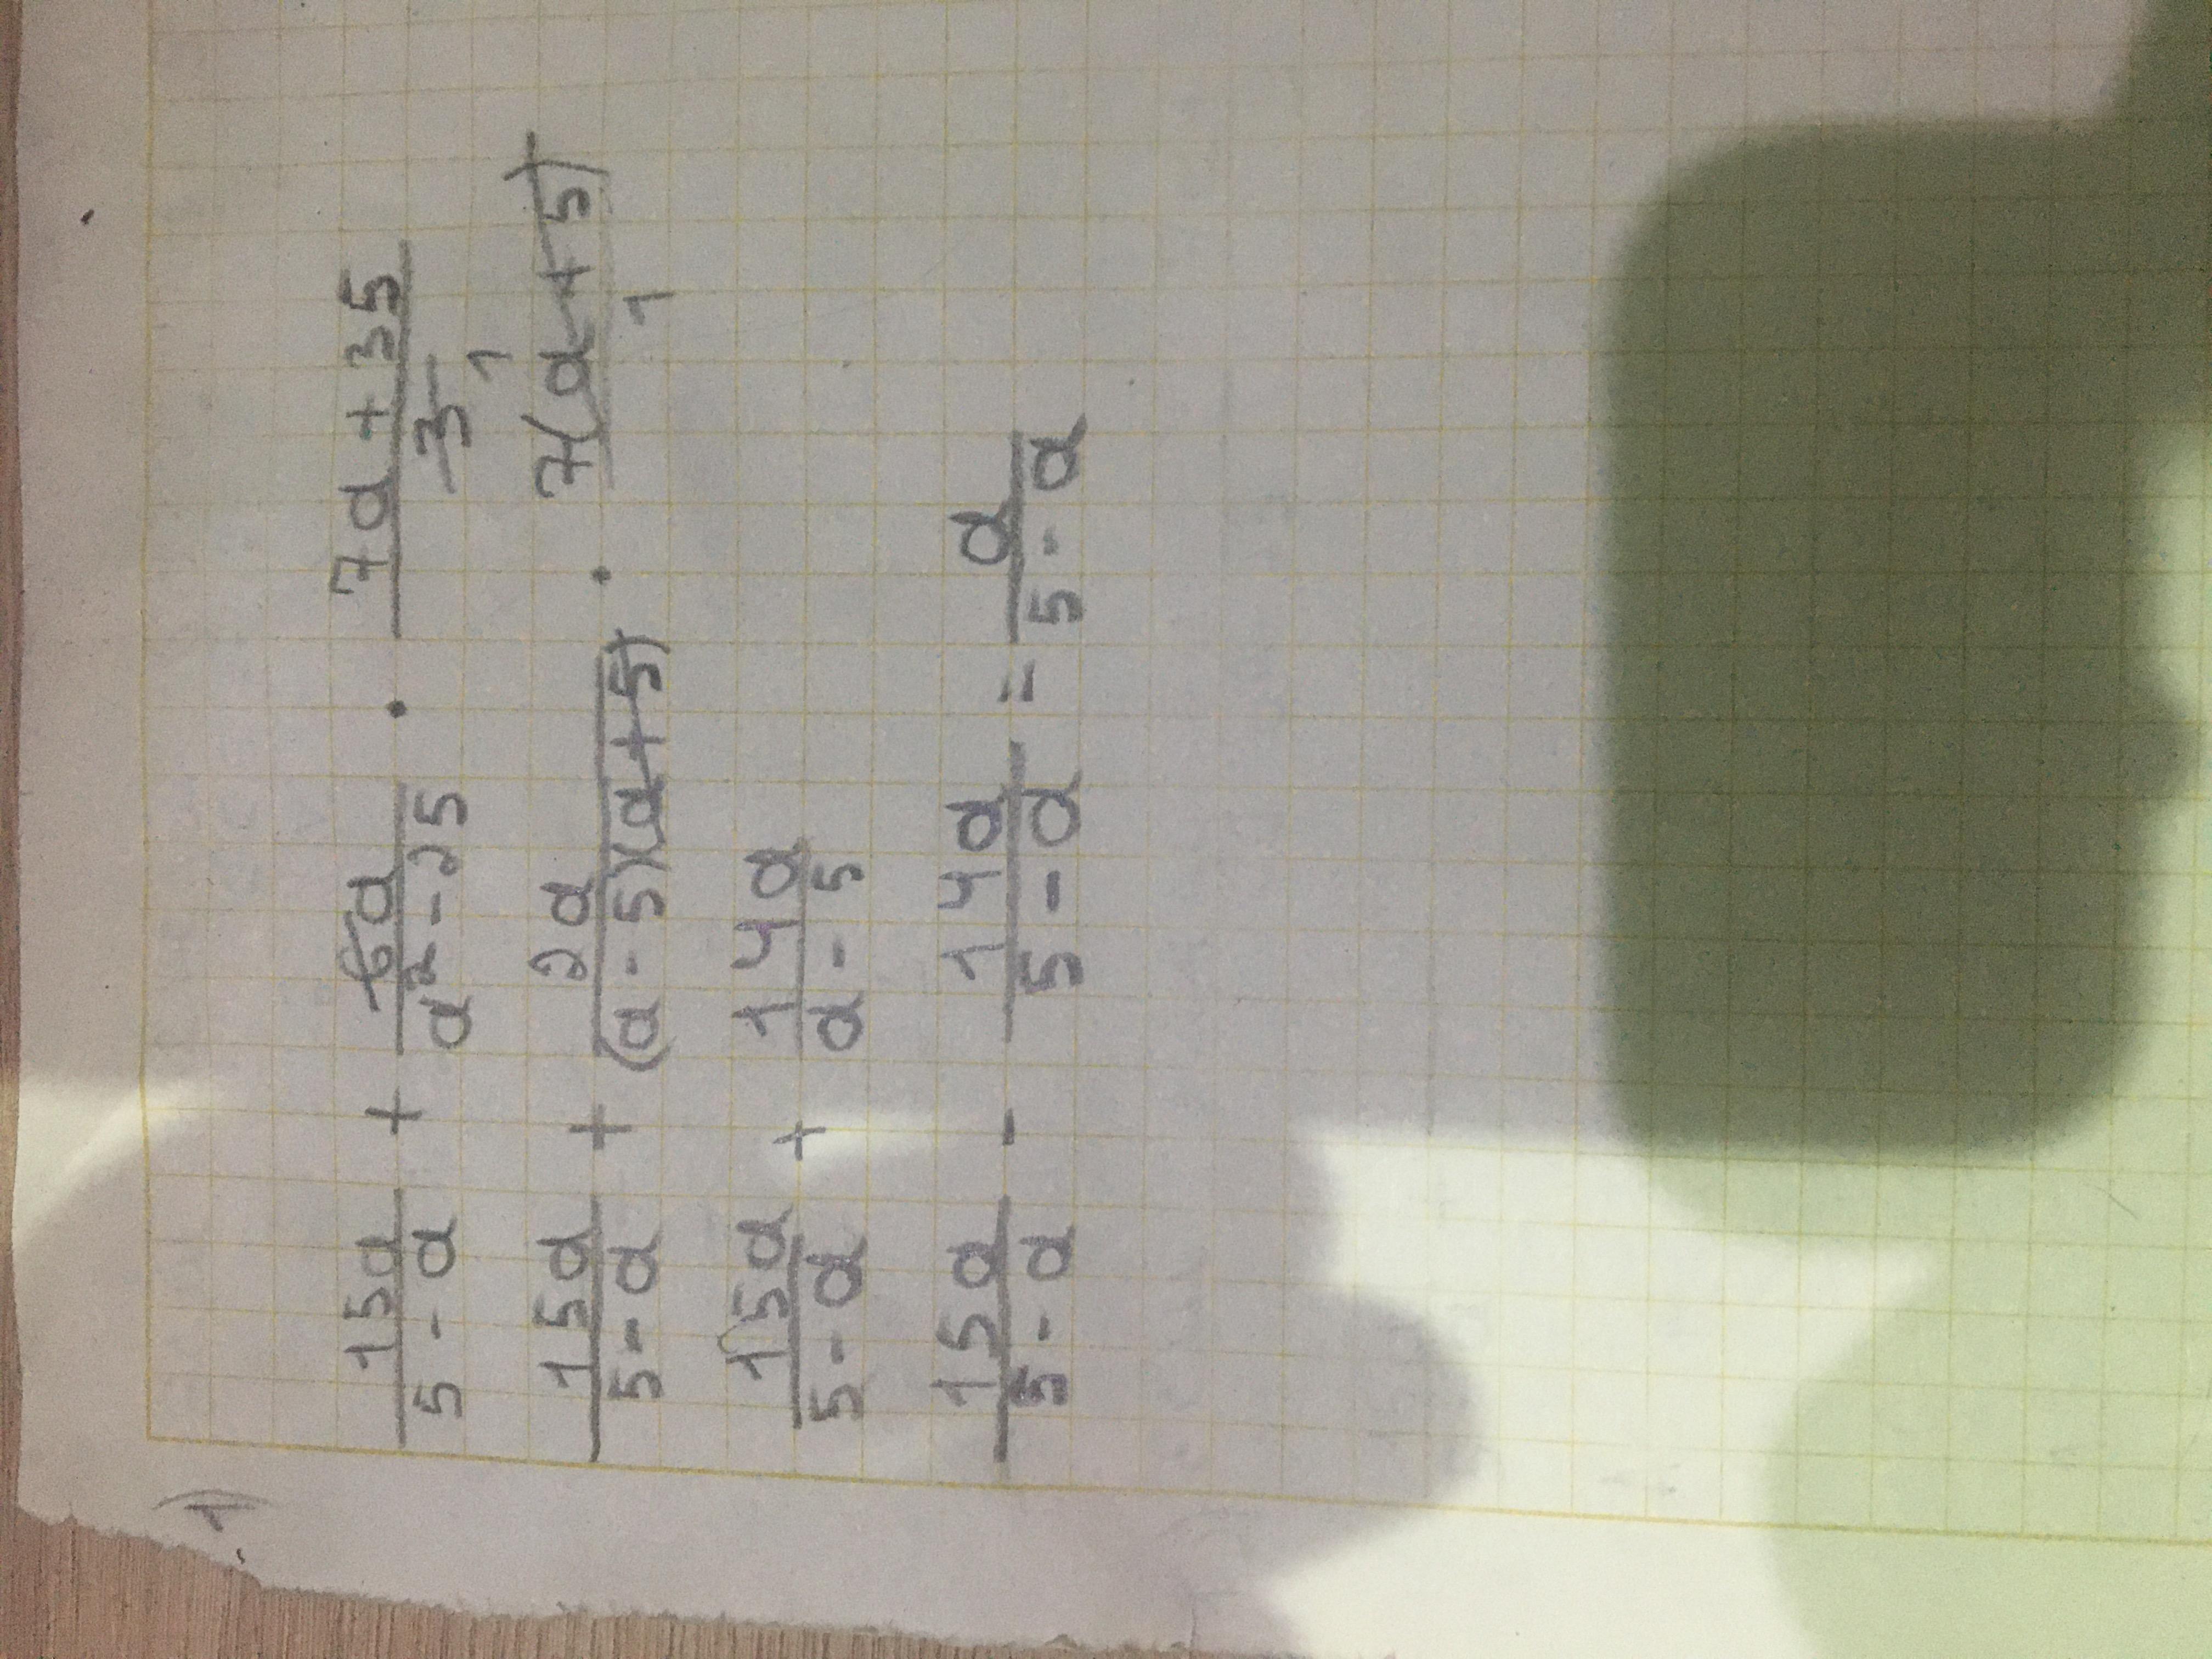 1)
15a/(5 - a) + 6a/(a² - 25) · (7a + 35)/3 1
15a/(5 - a) + 2a/((a - 5)(a + 5)) · 7(a + 5)/1
15a/(5 - a) + 14a/(a - 5)
15a/(5 - a) - 14a/(5 - a) = a/(5 - a)